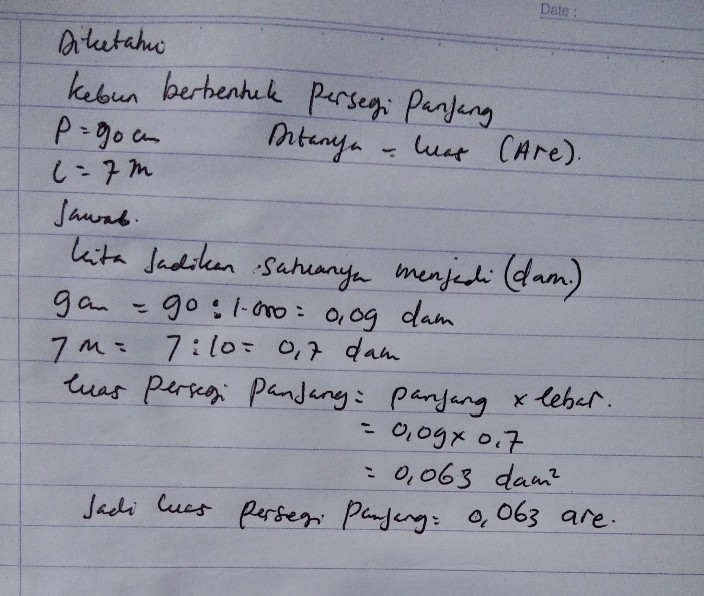 Date :
Diketahui
kebun berbentuk persegi Panjang
P = 90 cm Ditanya = luas (Are).
l = 7 m
Jawab.
kita Jadikan satuanya menjadi (dam.)
9 cm = 90 : 1.000 = 0,09 dam
7 m = 7 : 10 = 0,7 dam
luas persegi Panjang = panjang x lebar.
= 0,09 x 0,7
= 0,063 dam²
Jadi luas persegi Panjang = 0,063 are.